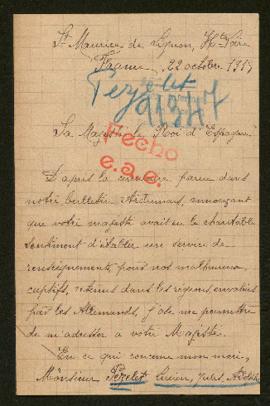 St Maurice de Lignon, Hte Loire
France, 22 octobre 1915
Pezelet
91347
Sa Majesté le Roi d'Espagne.
Fecho
e.a.e.
D'après la circulaire parue dans
notre bulletin annonçant
que votre majesté avait eu le charitable
sentiment d'établir un service de
renseignements pour nos malheureux
captifs, retenus dans les régions envahies
par les Allemands, j'ose me permettre
de m'adresser à votre Majesté.
En ce qui concerne mon mari,
Monsieur Pezelet Lucien, Jules, Adolphe